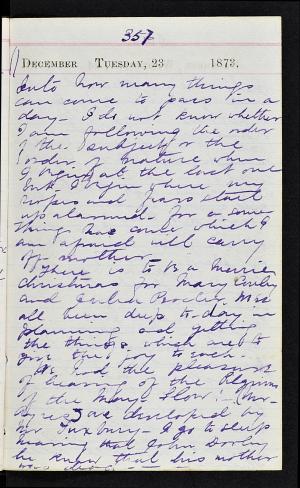 357
DECEMBER TUESDAY, 23 1873.
how many things
can come to pass in a
day - I do not know whether
I am following the order
of the subject or the
order of nature when
I begin at the last one
but I begin where my
hopes and fears start
up alarmed for a some
thing has come which I
am afraid will carry
off mother.
There is to be a merrie
christmas for Mary
and We
all been deep to-day in
planning and getting
the things which are to
give the joy to each.
We had the pleasure
of hearing of the Pilgrims
of the May Flower -
as developed by
Mr I go to sleep
hearing that John
he knew that his mother
was dead -